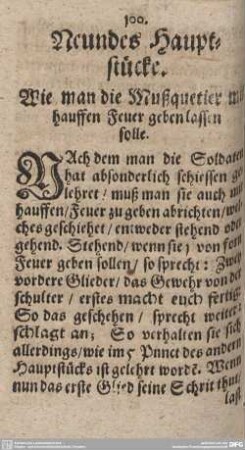 100.
Neundes Haupt-
stücke.
Wie man die Mußquetier mit
hauffen Feuer geben lassen
solle.
NAch dem man die Soldaten
hat absonderlich schiessen ge
lehret / muß man sie auch mit
hauffen / Feuer zu geben abrichten / wel
ches geschiehet / entweder stehend oder
gehend. Stehend / wenn sie von forn
Feuer geben sollen / so sprecht: Zwey
vordere Glieder / das Gewehr von der
schulter / erstes macht euch fertig.
So das geschehen / sprecht weiter:
schlagt an; So verhalten sie sich
allerdings / wie im 5 Punct des andern
Hauptstücks ist gelehrt wordē. Wenn
nun das erste Glied seine Schrit thut
last